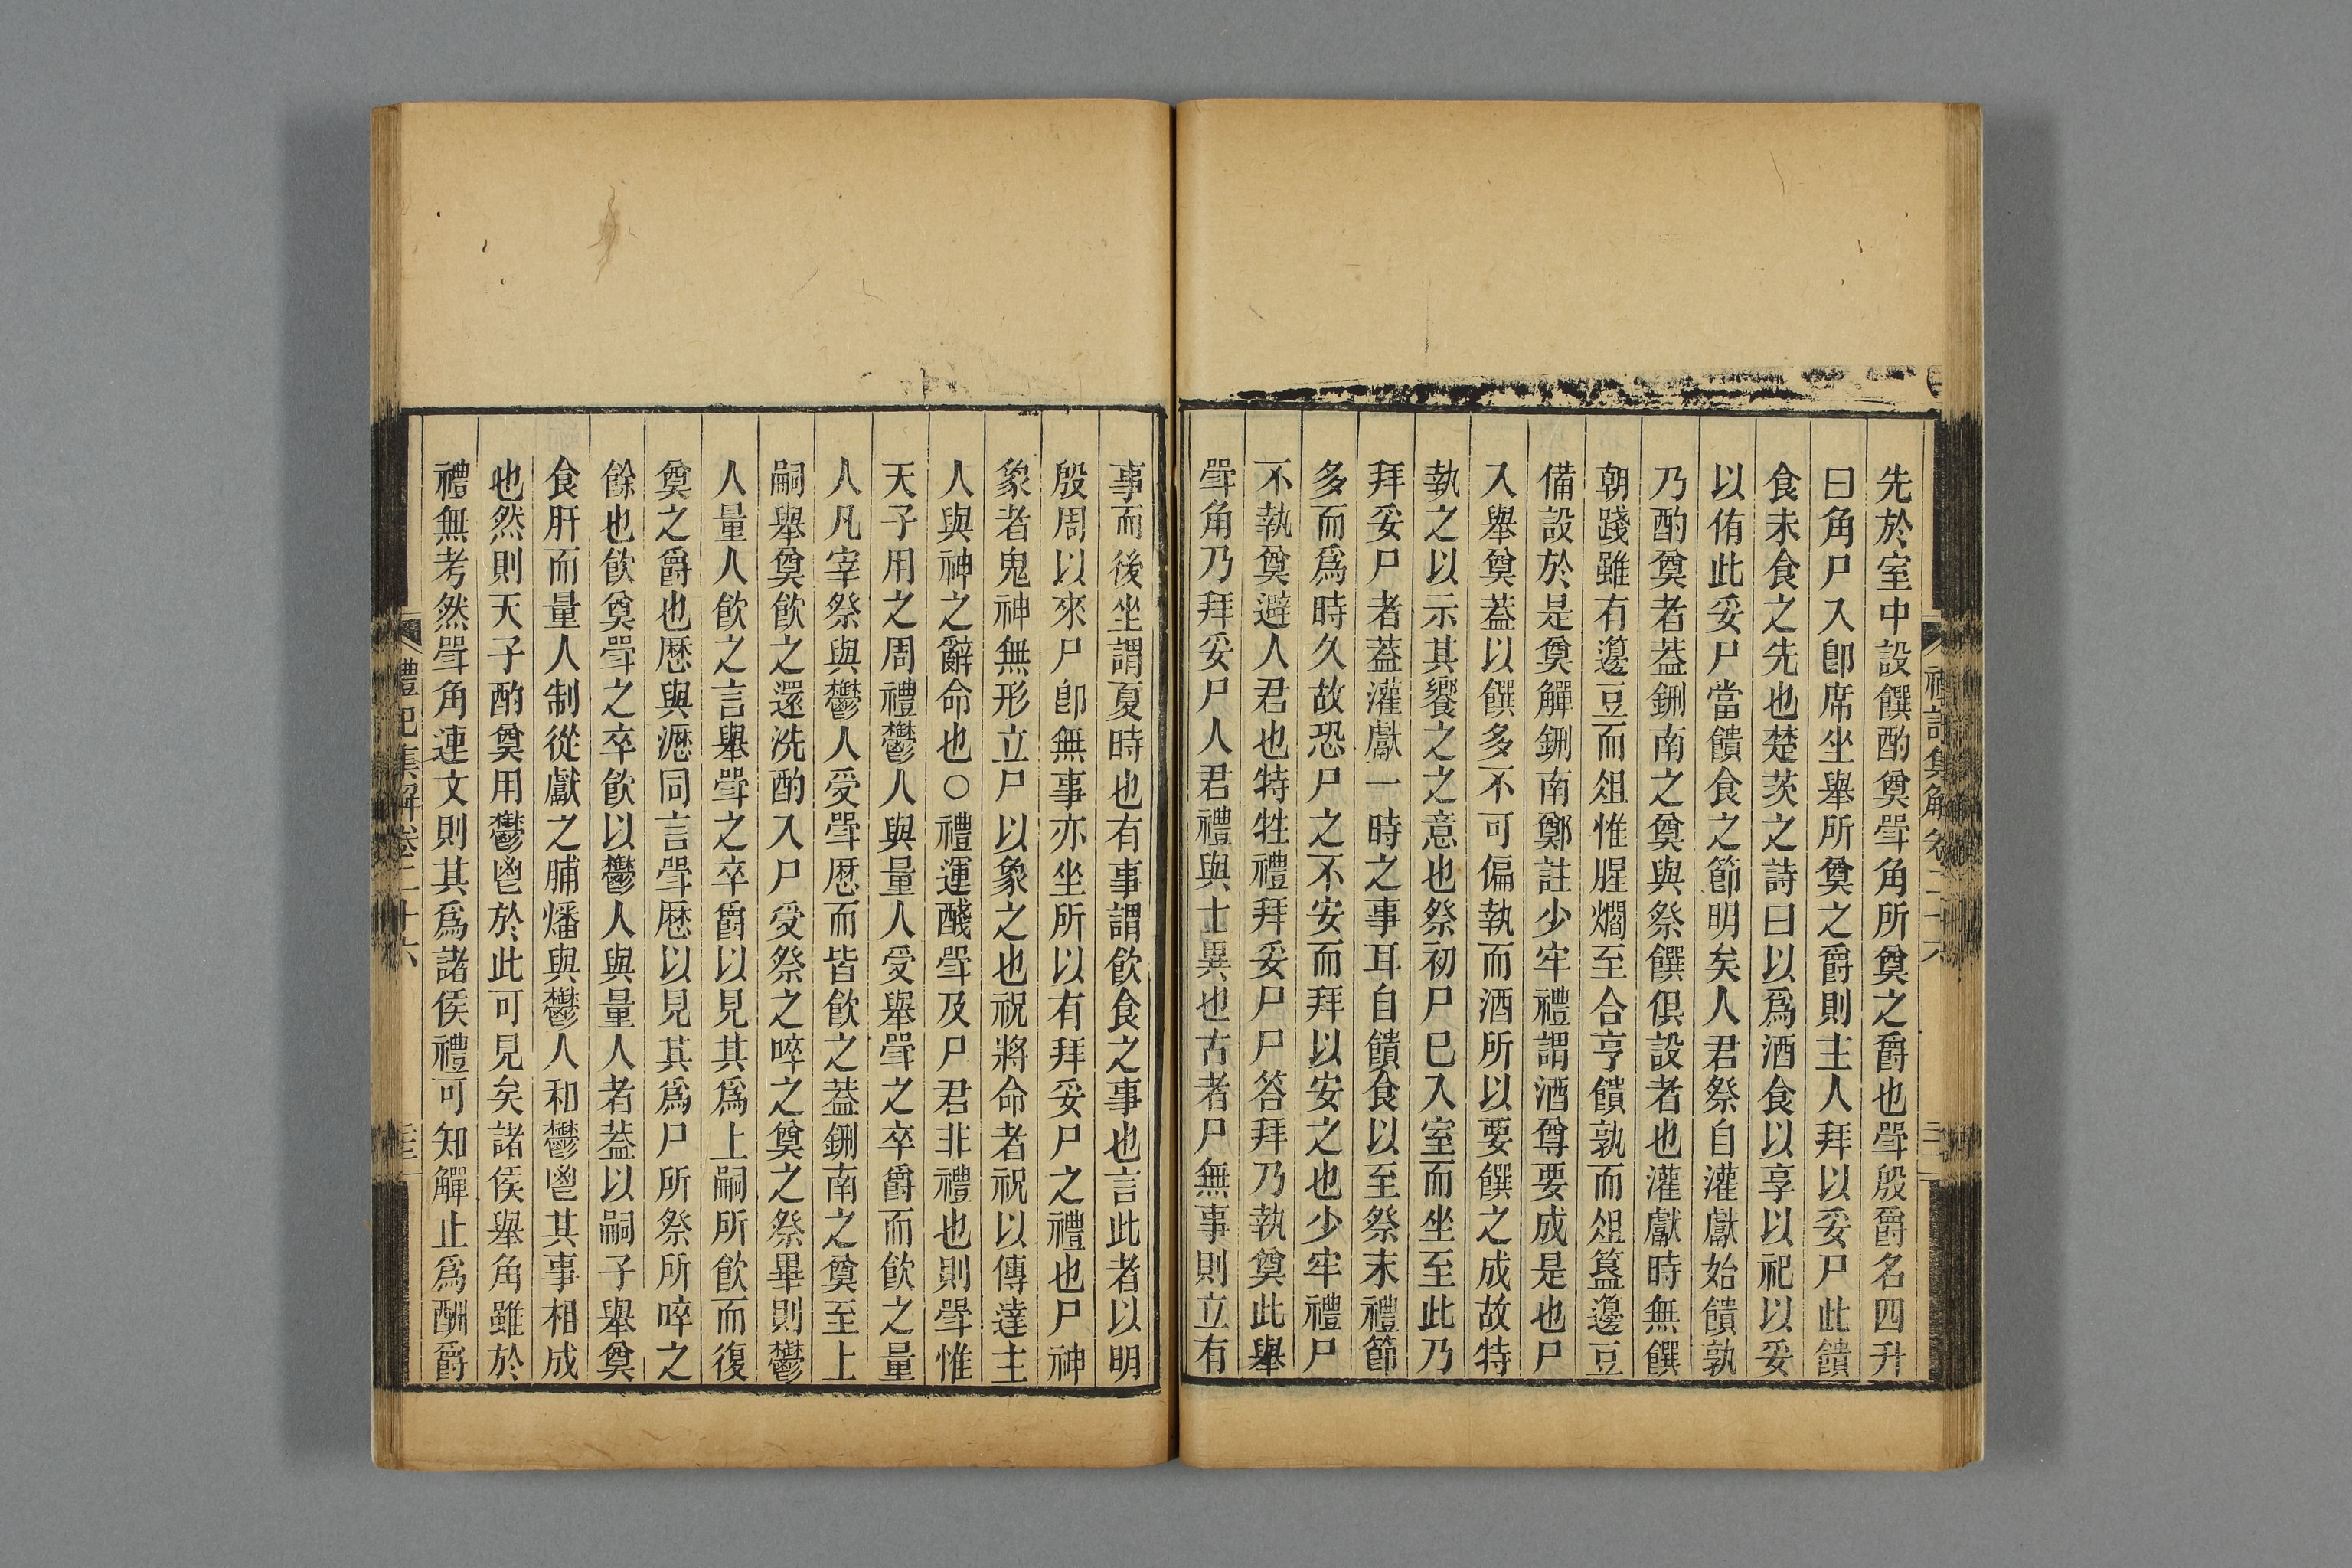 先於室中設饌酌奠斝角所奠之爵也斝殷爵名四升
曰角尸入卽席坐舉所奠之爵則主人拜以妥尸此饋
食未食之先也楚茨之詩曰以爲酒食以享以祀以妥
以侑此妥尸當饋食之節明矣人君祭自灌獻始饋孰
乃酌奠者葢鉶南之奠與祭饌俱設者也灌獻時無饌
朝踐雖有籩豆而俎惟腥爓至合亨饋孰而俎簋籩豆
備設於是奠觶鉶南鄭註少牢禮謂酒尊要成是也尸
入舉奠葢以饌多不可偏執而酒所以要饌之成故特
執之以示其饗之之意也祭初尸巳入室而坐至此乃
拜妥尸者葢灌獻一時之事耳自饋食以至祭末禮節
多而爲時久故恐尸之不安而拜以安之也少牢禮尸
不執奠避人君也特牲禮拜妥尸尸答拜乃執奠此舉
斝角乃拜妥尸人君禮與士異也古者尸無事則立有
事而後坐謂夏時也有事謂飮食之事也言此者以明
殷周以來尸卽無事亦坐所以有拜妥尸之禮也尸神
象者鬼神無形立尸以象之也祝將命者祝以傳達主
人與神之辭命也○禮運醆斝及尸君非禮也則斝惟
天子用之周禮鬱人與量人受舉斝之卒爵而飮之量
人凡宰祭與鬱人受斝歷而皆飮之葢鉶南之奠至上
嗣舉奠飮之還洗酌入尸受祭之啐之奠之祭畢則鬱
人量人飮之言舉斝之卒爵以見其爲上嗣所飮而復
奠之爵也歷與瀝同言斝歷以見其爲尸所祭所啐之
餘也飮奠斝之卒飮以鬱人與量人者葢以嗣子舉奠
食肝而量人制從獻之脯燔與鬱人和鬱鬯其事相成
也然則天子酌奠用鬱鬯於此可見矣諸侯舉角雖於
禮無考然斝角連文則其爲諸侯禮可知觶止爲酬爵
禮記集解卷二十六